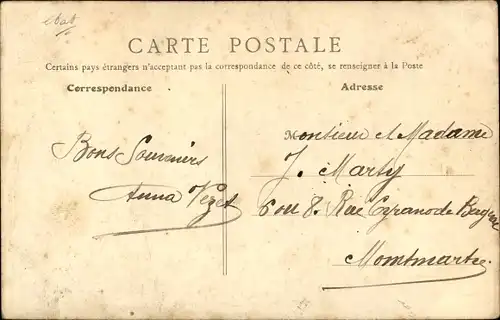 CARTE POSTALE
Certains pays étrangers n'acceptant pas la correspondance de ce côté, se renseigner à la Poste
Correspondance
Adresse
Bons Souvenirs
Anna Vezet
Monsieur et Madame
J. Marty
6 ou 8. Rue Cyrano de
Montmartre.